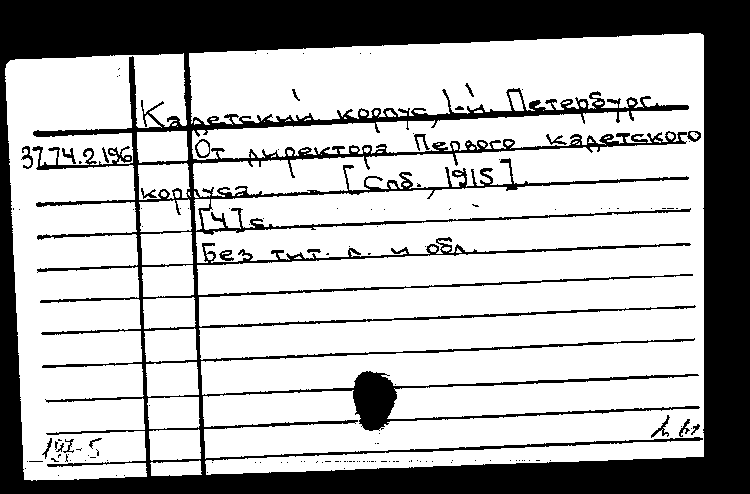 Кадетский корпус, 1-й. Петербург.
37.74.2.196 От директора Первого кадетского
корпуса. – [Спб., 1915].
[4] с.
Без тит. л. и обл.
197-5